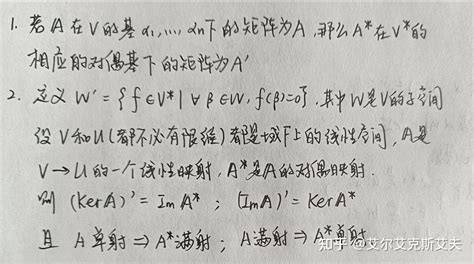 1. 若A在V的基α₁,…,αn下的矩阵为A,那么A*在V*的
相应的对偶基下的矩阵为A'
2. 定义W' = {f∈V* | ∀β∈W, f(β)=0},其中W是V的子空间
设V和U(都不必有限维)都是域F上的线性空间,A是
V→U的一个线性映射,A*是A的对偶映射.
则 (KerA)' = ImA* ; (ImA)' = KerA*
且 A单射⇒A*满射; A满射⇒A*单射
知乎 @艾尔艾克斯艾夫